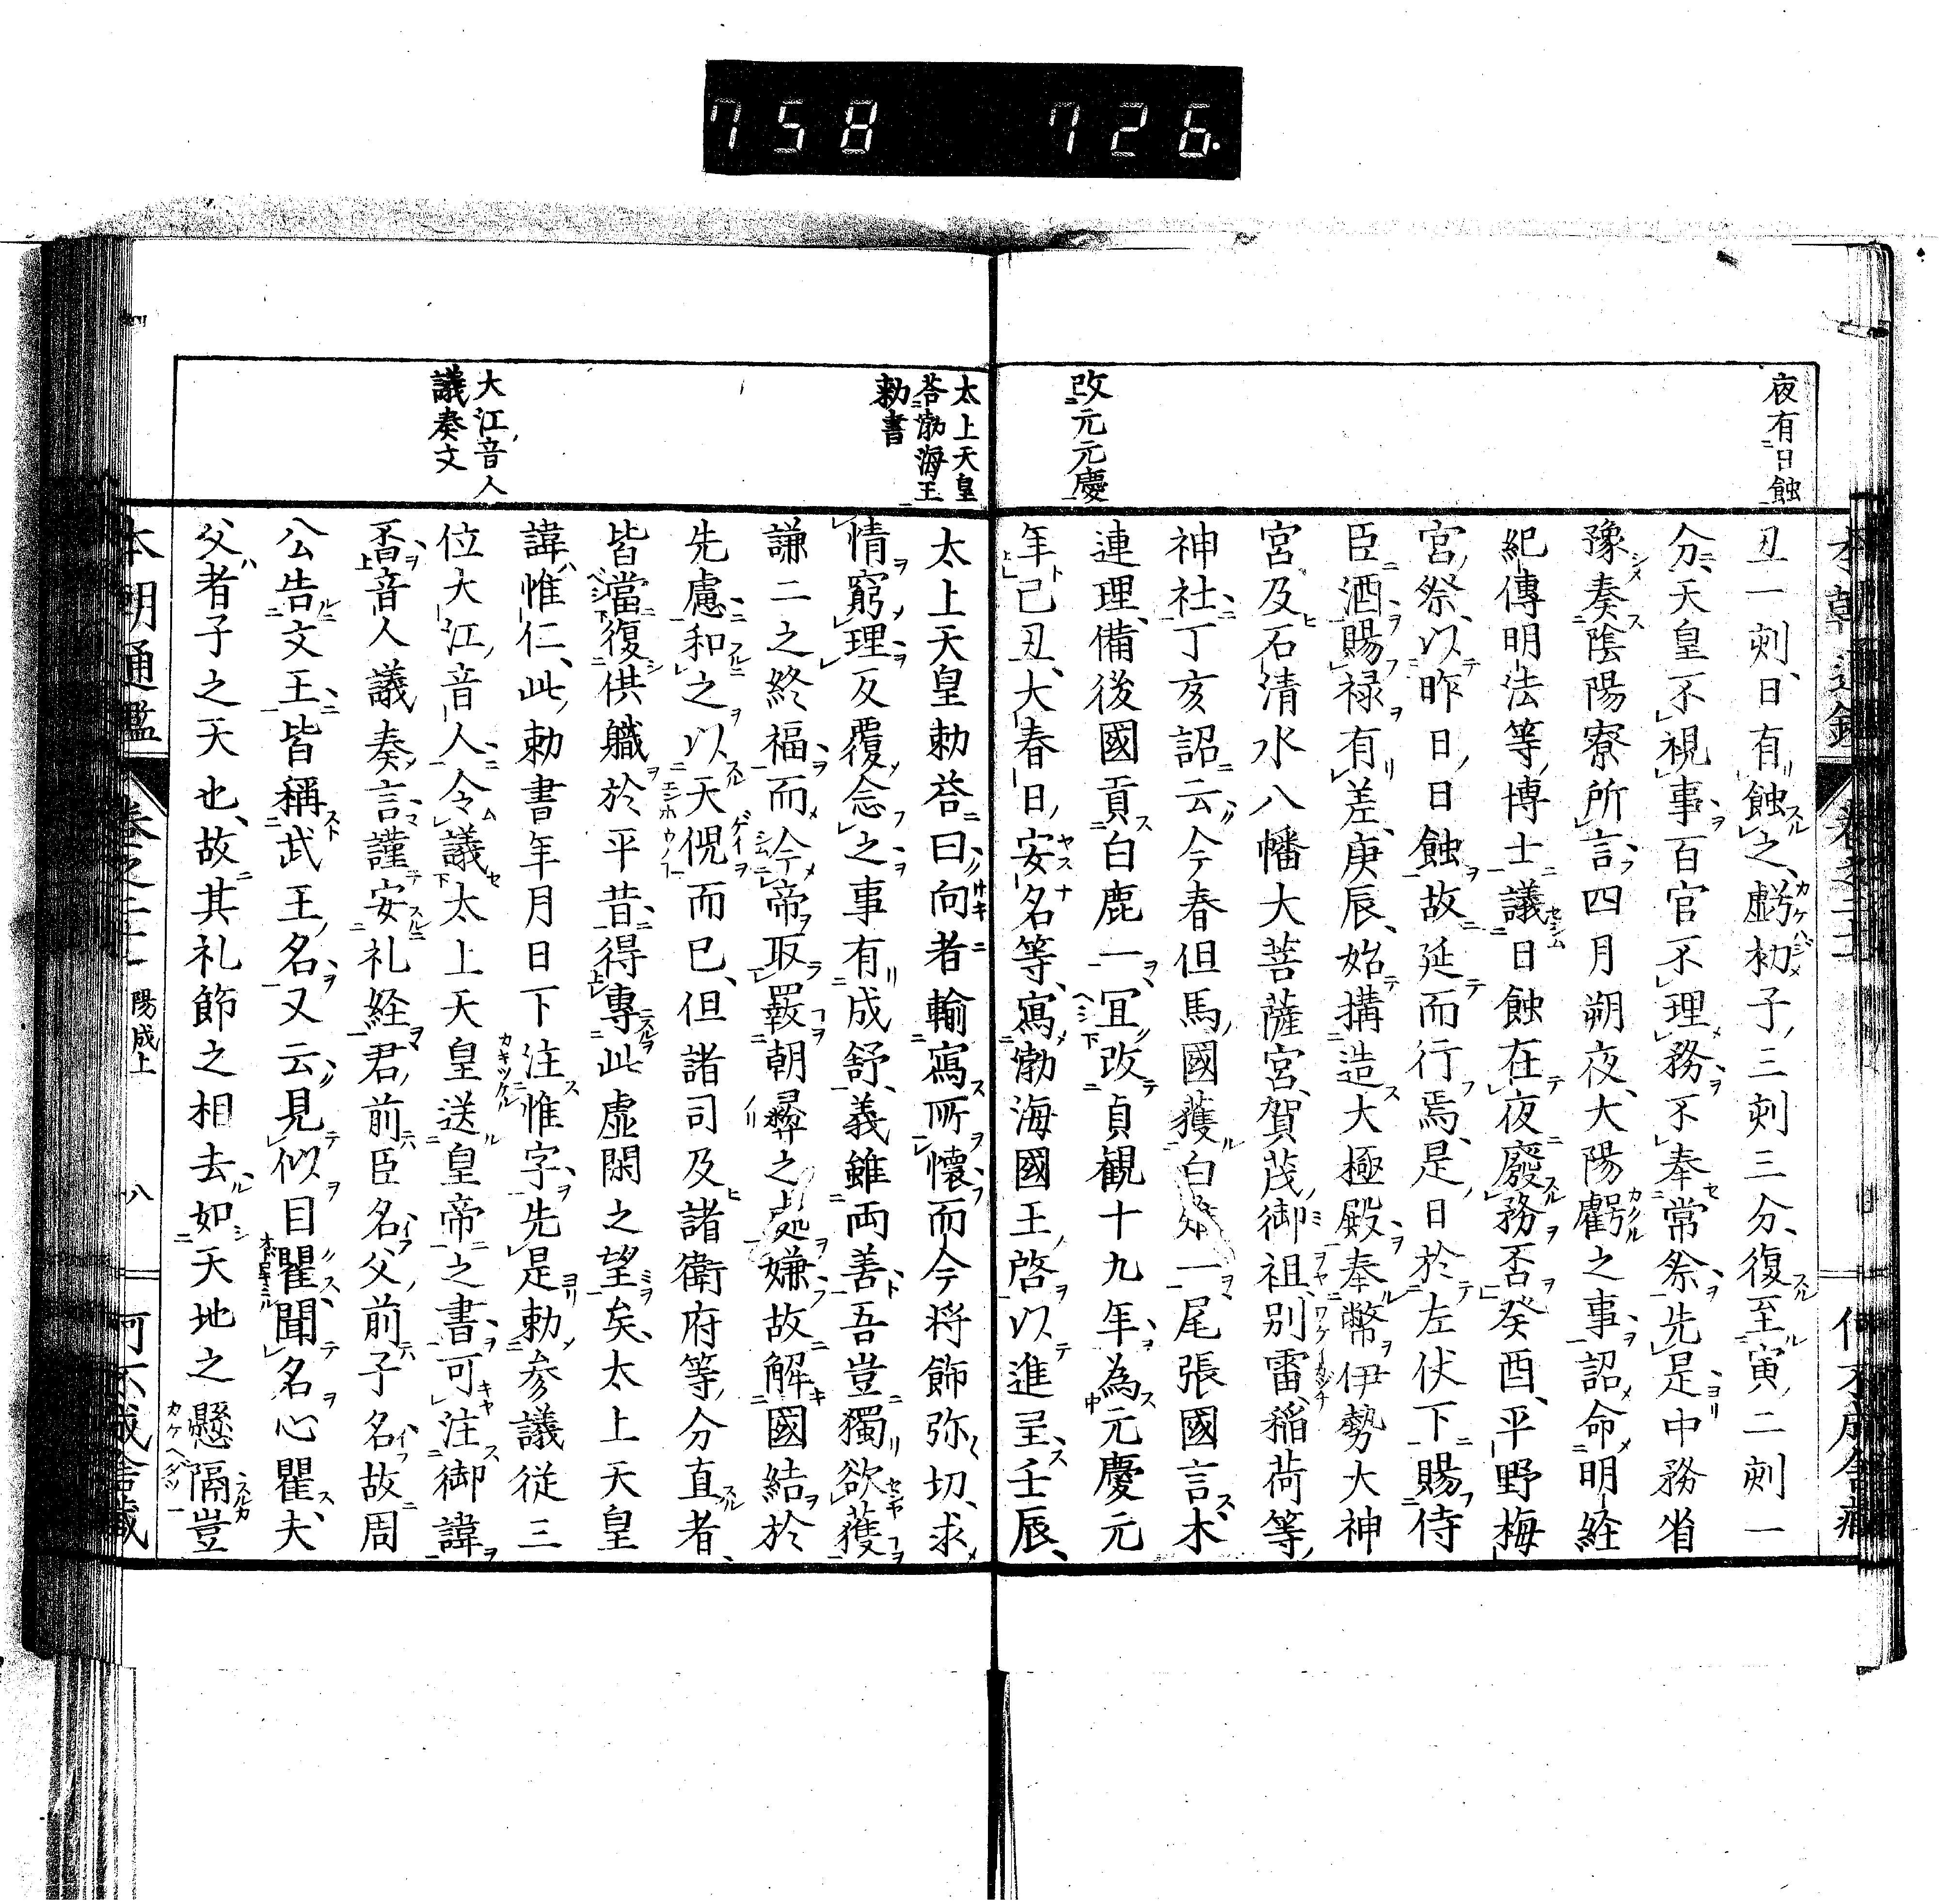 758 726.
夜有日蝕
丑一刻、日有蝕之、虧初子三刻三分、復至寅二刻一
分、天皇不視事百官不理務不奉常祭、先是中務省
豫奏陰陽寮所言、四月朔夜、大陽虧之事、詔命明経
紀傳明法等博士議日蝕在夜廢務否、癸酉、平野梅
宮祭、以昨日日蝕故延而行焉、是日於左仗下賜侍
臣酒、賜禄有差、庚辰、始搆造大極殿、奉幣伊勢大神
宮及石清水八幡大菩薩宮、賀茂御祖別雷、稲荷等
神社、丁亥詔云、今春但馬國獲白 一尾張國言木
連理、備後國貢白鹿一、冝改貞観十九年、為元慶元
年、己丑、大春日安名等、寫渤海國王啓以進呈、壬辰、
改元元慶
太上天皇
荅渤海王
勅書
太上天皇勅荅曰、向者輸寫所懷、而今将飾弥切、求
情窮理、反覆念之、事有成舒、義雖両善、吾豈獨欲獲
謙二之終福、而令帝取 朝彛之 嫌、故解國結於
先慮、和之以天倪而已、但諸司及諸衛府等分直者、
皆當復供軄於平昔、得專此虚閑之望矣、太上天皇
諱惟仁、此勅書年月日下注惟字、先是勅参議従三
位大江音人、令議太上天皇送皇帝之書可注御諱
否、音人議奏言、謹安礼経、君前臣名、父前子名、故周
公告文王、皆稱武王名、又云、見似目瞿、聞名心瞿、夫
父者子之天也、故其礼節之相去、如天地之懸隔、豈
大江音人
議奏文
本朝通鑑
陽成上
八